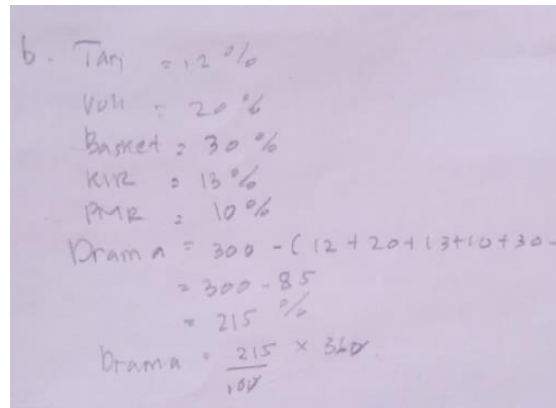 b. Tari = 12 %
Voli = 20 %
Basket = 30 %
KIR = 13 %
PMR = 10 %
Drama = 300 - ( 12 + 20 + 13 + 10 + 30 -
= 300 - 85
= 215 %
Drama = 215/100 × 360